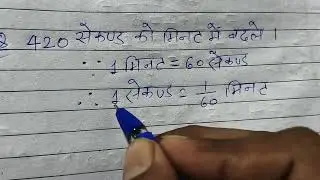 420 सेकण्ड को मिनट में बदले ।
∵ 1 मिनट = 60 सेकण्ड
∴ 1 सेकण्ड = 1/60 मिनट